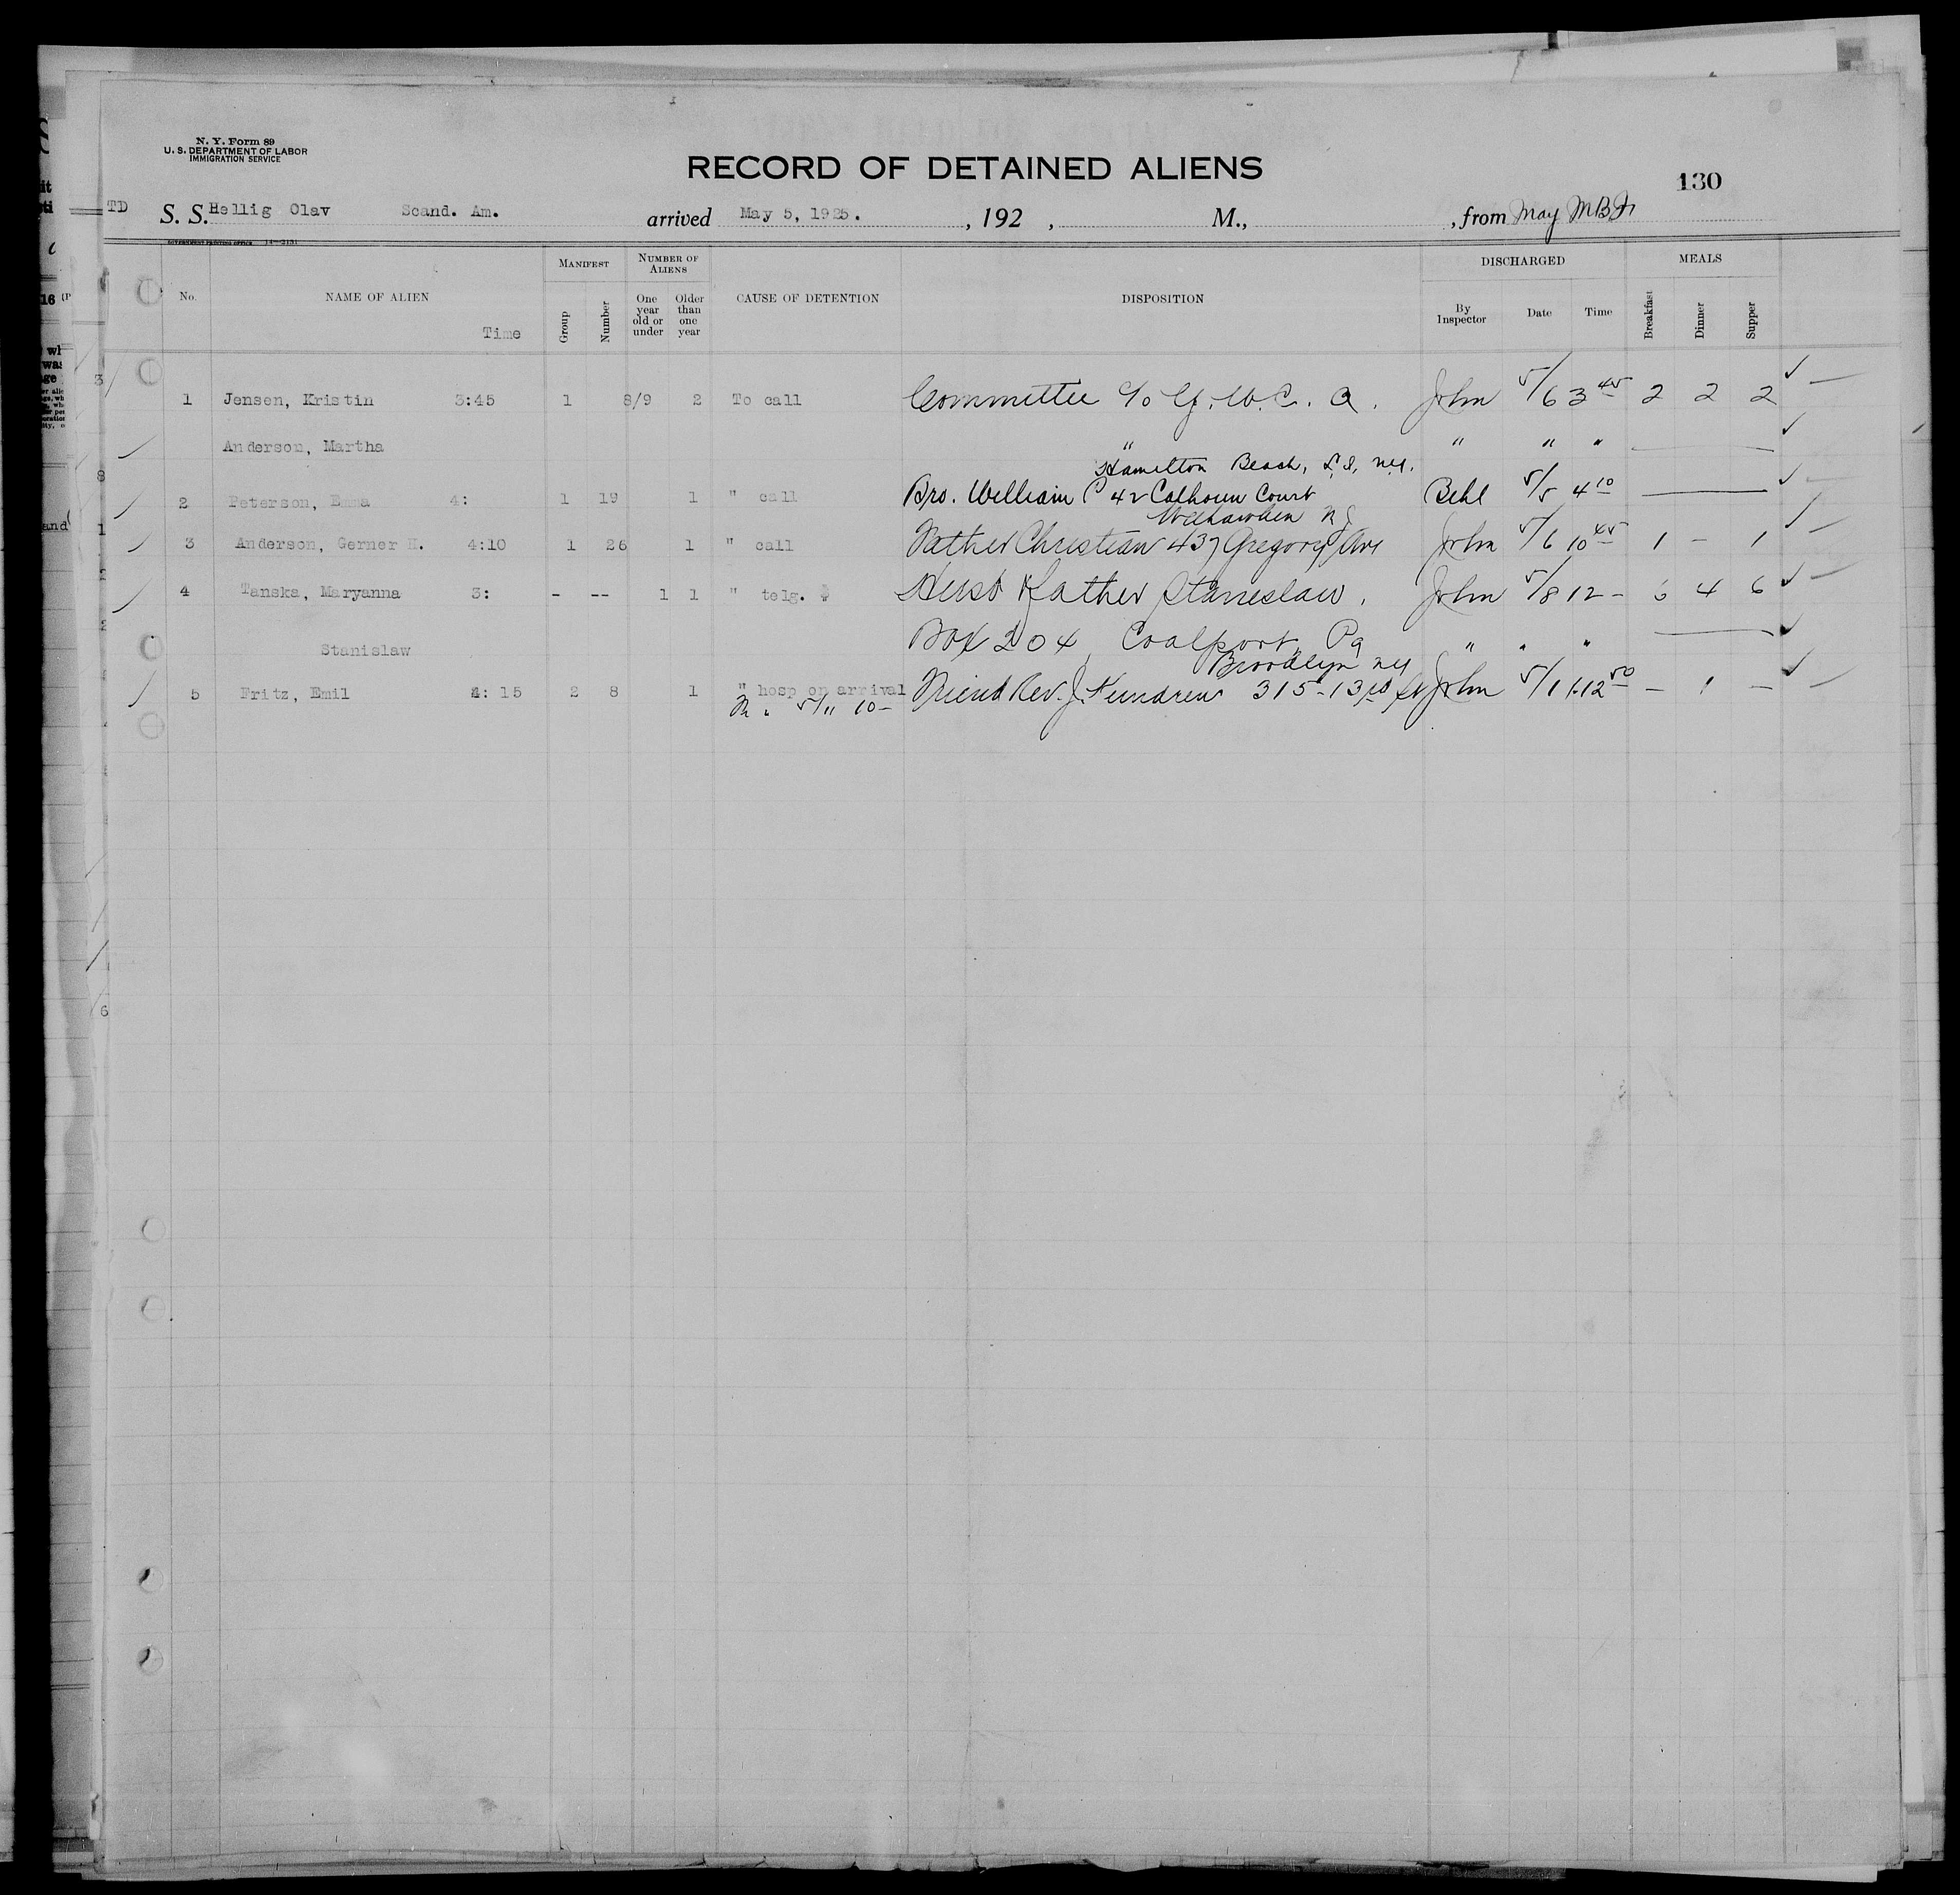 N. Y. Form 89
U. S. DEPARTMENT OF LABOR
IMMIGRATION SERVICE
RECORD OF DETAINED ALIENS
130
TD S. S. Hellig Olav Scand. Am. arrived May 5, 1925. , 192 , M., , from May
No. NAME OF ALIEN Time MANIFEST Group Number NUMBER OF ALIENS One year old or under Older than one year CAUSE OF DETENTION DISPOSITION DISCHARGED By Inspector Date Time MEALS Breakfast Dinner Supper
1 Jensen, Kristin 3:45 1 8/9 2 To call Committee c/o Y. W. C. A. John 5/6 3 45 2 2 2 ✓ —
Anderson, Martha " " " " ✓
Hamilton Beach, L.I, N.Y.
2 Peterson, Emma 4: 1 19 1 " call Bro. William P 42 Calhoun Court Behl 5/5 4 10 ✓
Weehawken N J
3 Anderson, Gerner H. 4:10 1 26 1 " call Father Christian 437 Gregory Ave John 5/6 10 45 1 – 1 ✓ —
4 Tanska, Maryanna 3: - -- 1 1 " telg. Husb & father Stanislaw, John 5/8 12 – 4 6 ✓ —
Stanislaw Box 204, Coalport, Pa " " " ✓
Brooklyn NY
5 Fritz, Emil 4: 15 2 8 1 " hosp on arrival Friend Rev. J. 315-13th St John 5/11 12 50 – 1 – ✓ —
5/11 10 –